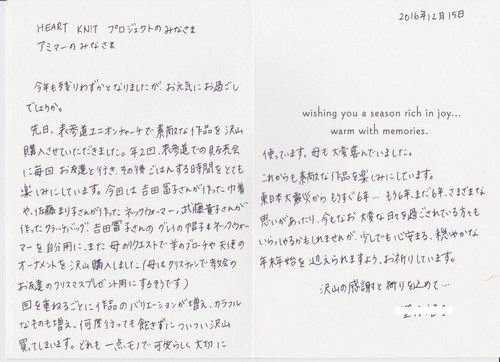 HEART KNIT プロジェクトのみなさま
アミマーのみなさま
今年も残りわずかとなりましたが、お元気にお過ごし
でしょうか。
先日、表参道ユニオンチャーチで素敵な作品を沢山
購入させていただきました。年2回、表参道での販売会
に毎回お友達と行き、その後ごはんする時間をとても
楽しみにしています。今回は吉田冨子さんが作った巾着
や、佐藤まり子さんが作ったネックウォーマー、武藤
さんが
作ったクラッチバッグ、吉田冨子さんのグレイの帽子&ネックウォー
マーを自分用に、また母がリクエストで羊のブローチや天使の
オーナメントを沢山購入しました(母はクリスチャンで教会の
お友達のクリスマスプレゼント用にするそうです)
回を重ねるごとに作品のバリエーションが増え、カラフル
なものも増え、何度行っても飽きずについつい沢山
買ってしまいます。どれも一点モノで可愛らしく大切に
2016年12月15日
wishing you a season rich in joy...
warm with memories.
使っています。母も大変喜んでいました。
これからも素敵な作品を楽しみにしています。
東日本大震災からもうすぐ6年…もう6年、まだ6年、さまざまな
思いがあったり、今もなお大変な日々を過ごされている方々も
いらっしゃるかもしれませんが、少しでも心安まる、穏やかな
年末年始を迎えられますよう、お祈りしています。
沢山の感謝と祈りを込めて…